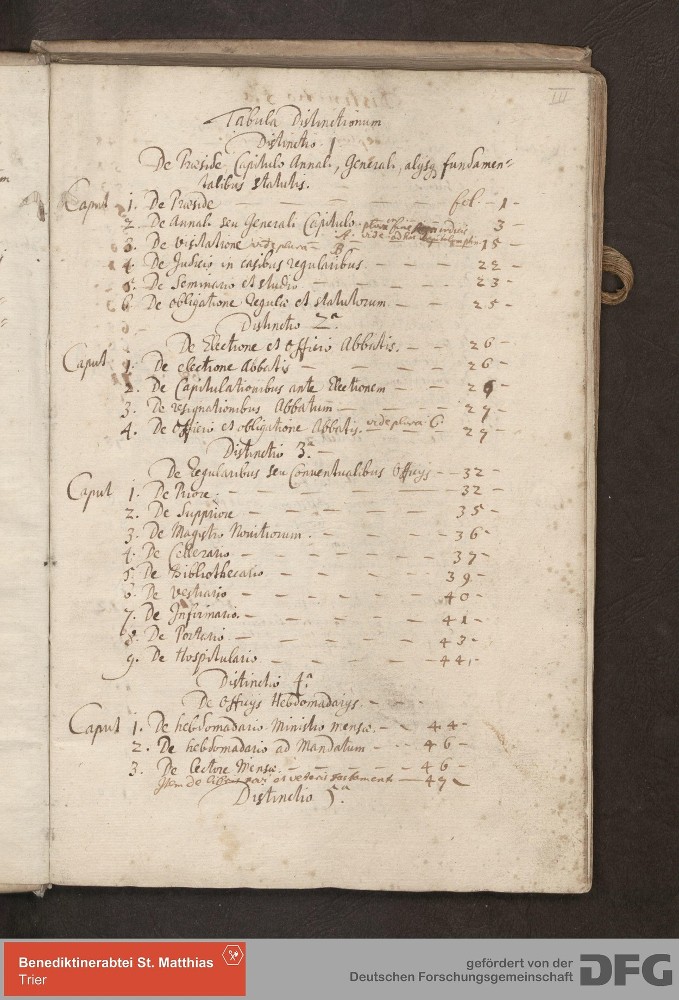 III
Tabula Distinctionum
Distinctio 1
De Præside Capitulo Annali, Generali, alijsq fundamen-
talibus statutis.
Caput 1. De Præside fol - 1 -
2. De Annali seu Generali Capitulo 3 -
3. De Visitatione vide plura B 15 -
4. De Judicio in casibus regularibus 22 -
5. De Seminario et studio 23 -
6 De obligatione Regulæ et statutorum 25 -
Distinctio 2.a
De Electione et Officio Abbatis. 26 -
Caput 1. De electione Abbatis 26 -
2. De Capitulationibus ante Electionem 26 -
3. De resignationibus Abbatum 27 -
4. De Officio et obligatione Abbatis. vide plura C 27 -
Distinctio 3.a
De Regularibus seu Conventualibus Officijs 32 -
Caput 1. De Priore. 32 -
2. De Suppriore 35 -
3. De Magistro Novitiorum. 36 -
4. De Cellerario 37 -
5. De Bibliothecario 39 -
6. De Vestiario 40 -
7. De Infirmario. 41 -
8. De Portario 43 -
9. De Hospitulario 44. -
Distinctio 4.a
De Officijs Hebdomadarijs.
Caput 1. De hebdomadario Ministro mensæ. 44 -
2. De hebdomadario ad Mandatum 46 -
3. De Lectore Mensæ. 46 -
Item de libris novi et veteris testamenti 47 -
Distinctio 5.a
Benediktinerabtei St. Matthias
Trier
gefördert von der
Deutschen Forschungsgemeinschaft DFG